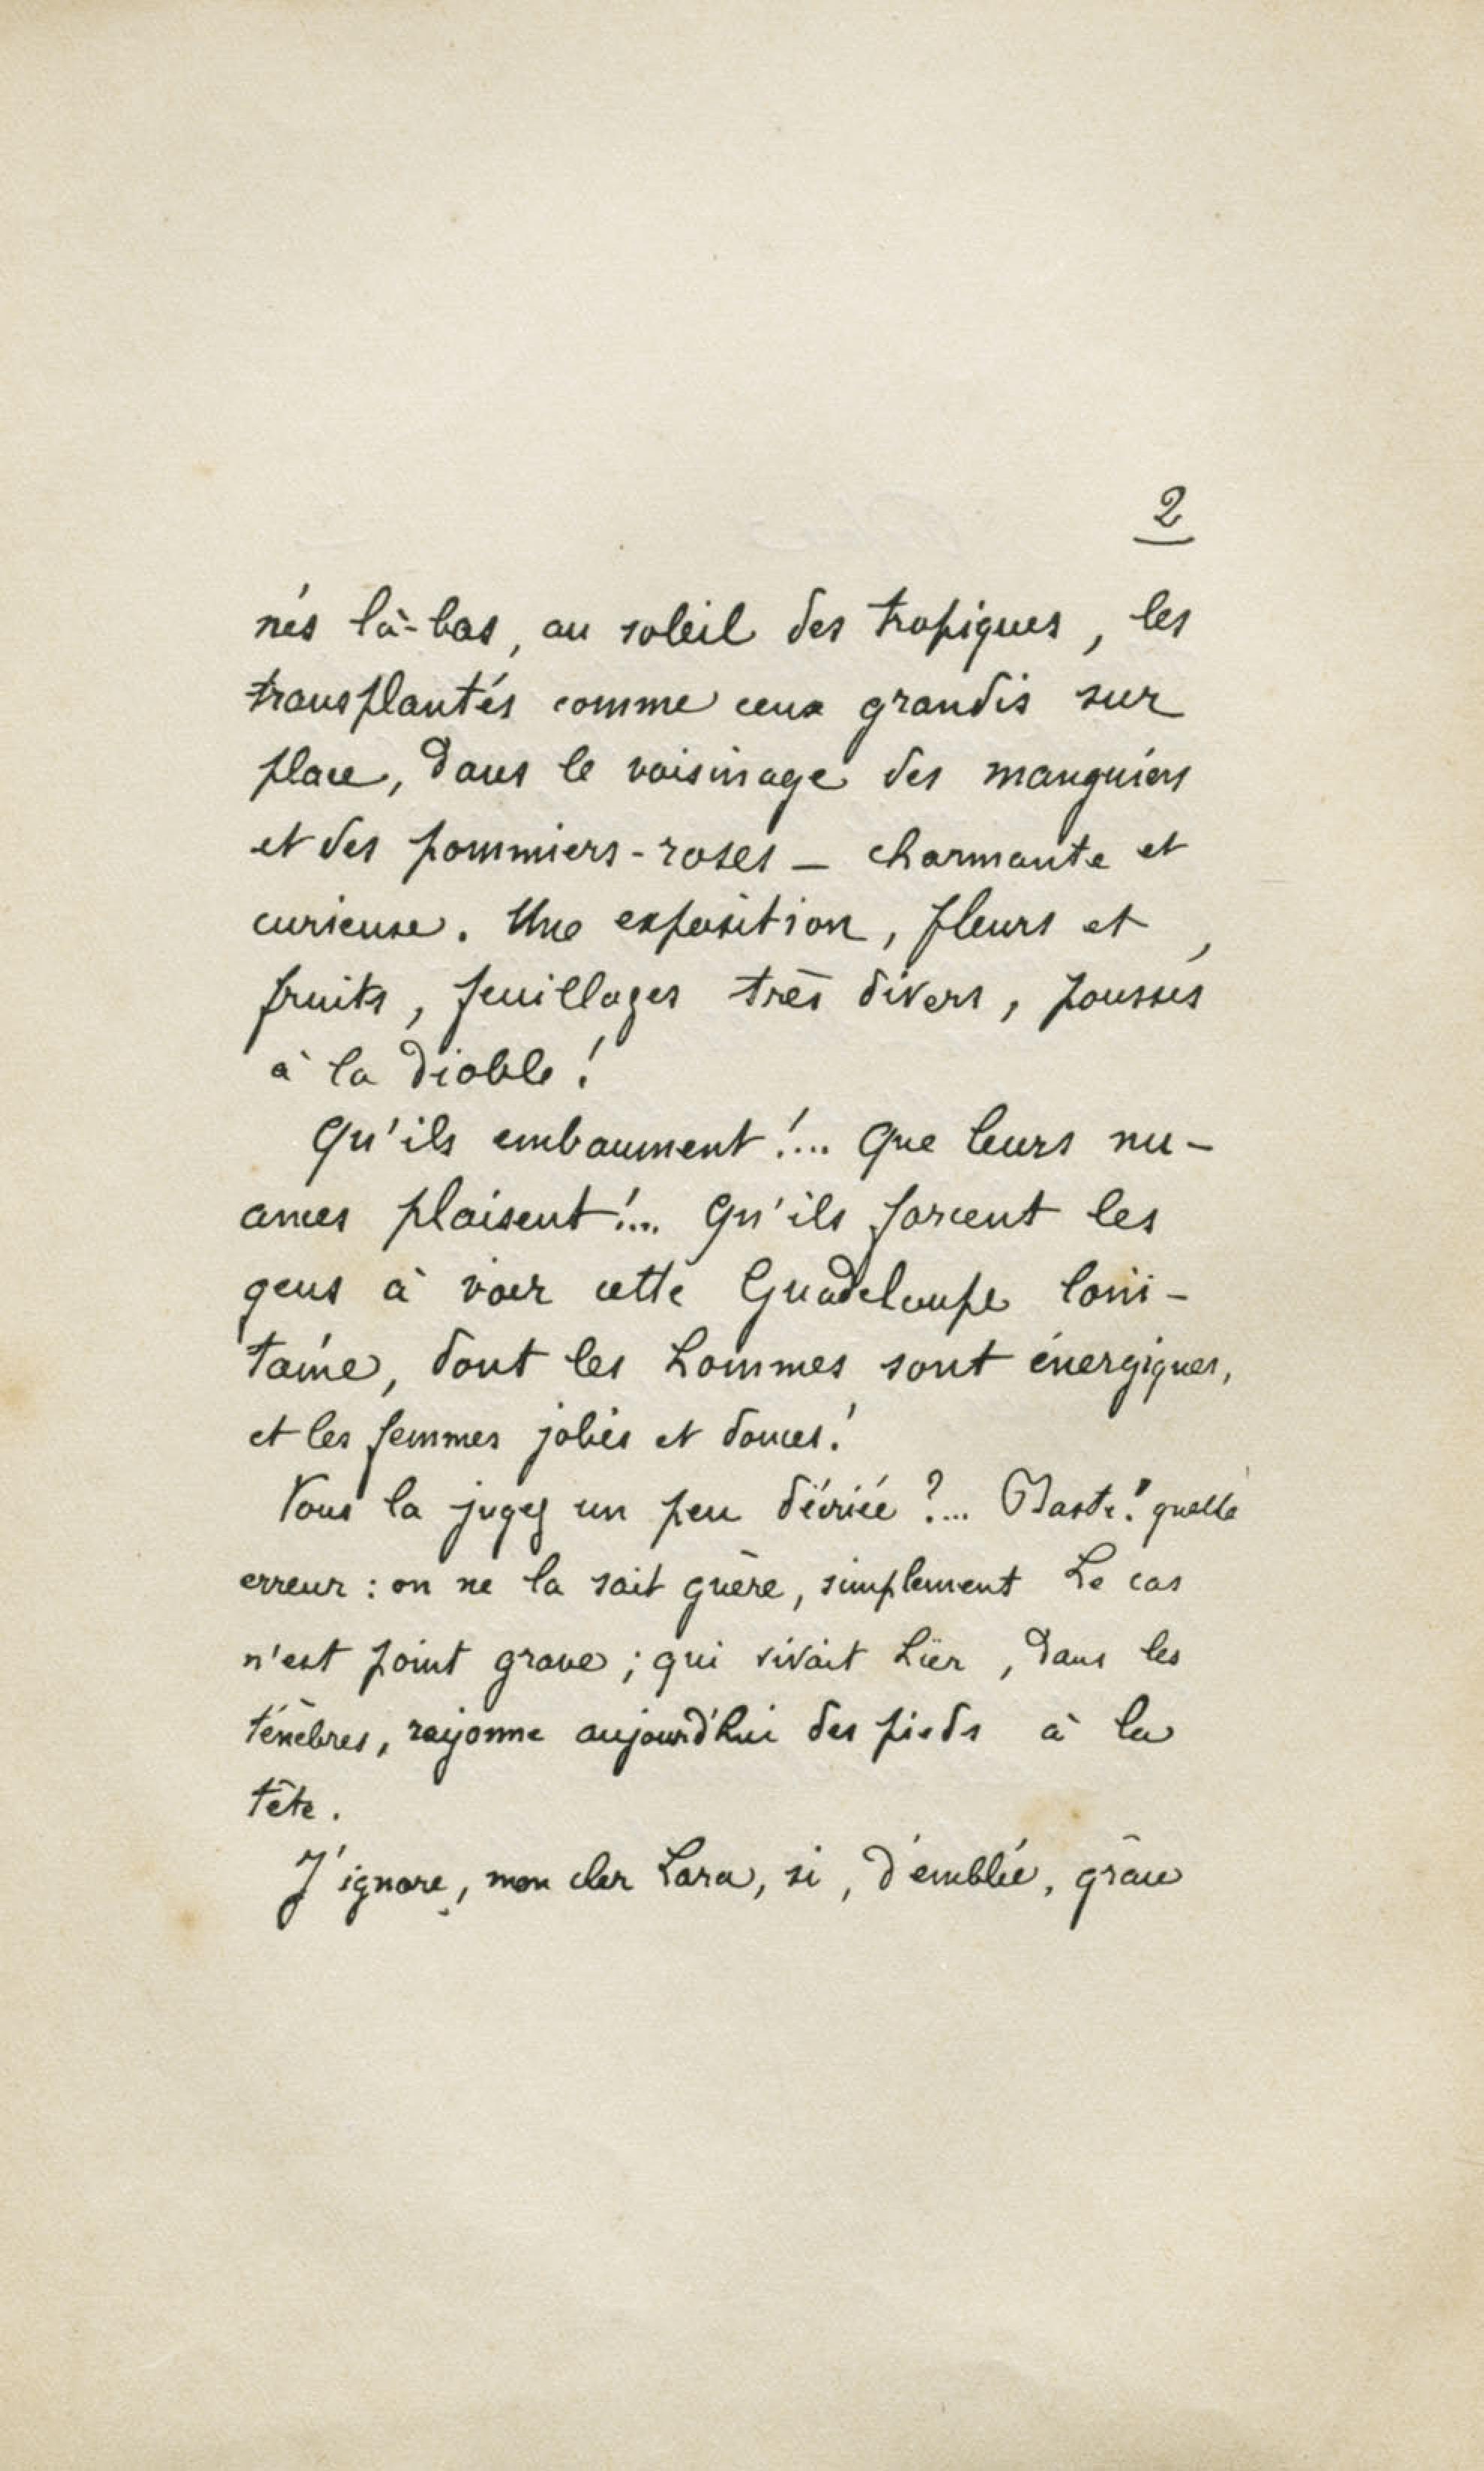 2
nés là-bas, au soleil des tropiques, les
transplantés comme ceux grandis sur
place, dans le voisinage des manguiers
et des pommiers-roses – charmante et
curieuse. Une exposition, fleurs et
fruits, feuillages très divers, poussés
à la diable !
Qu'ils embaument !... Que leurs nu-
ances plaisent !... Qu'ils forcent les
gens à voir cette Guadeloupe loin-
taine, dont les hommes sont énergiques,
et les femmes jolies et douces !
Vous la jugez un peu décriée ?... Baste ! quelle
erreur : on ne la sait guère, simplement Le cas
n'est point grave ; qui vivait hier, dans les
ténèbres, rayonne aujourd'hui des pieds à la
tête.
J'ignore, mon cher Lara, si, d'emblée, grâce